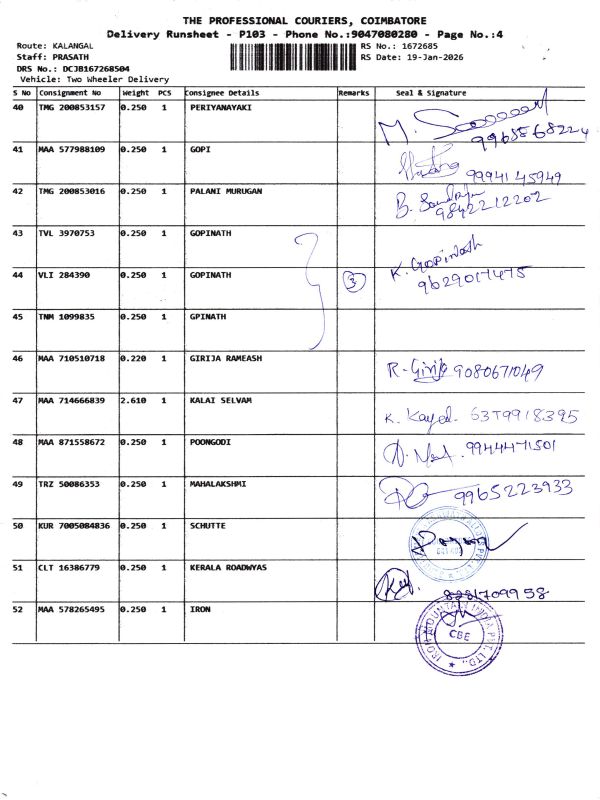 THE PROFESSIONAL COURIERS, COIMBATORE
Delivery Runsheet - P103 - Phone No.:9047080280 - Page No.:4
Route: KALANGAL
RS No.: 1672685
Staff: PRASATH
RS Date: 19-Jan-2026
DRS No.: DCJB167268504
Vehicle: Two Wheeler Delivery
S No Consignment No Weight PCS Consignee Details Remarks Seal & Signature
40 TMG 200853157 0.250 1 PERIYANAYAKI M.
41 MAA 577988109 0.250 1 GOPI 9994145949
42 TMG 200853016 0.250 1 PALANI MURUGAN B. 9842212202
43 TVL 3970753 0.250 1 GOPINATH K. Gopinath
44 VLI 284390 0.250 1 GOPINATH 3 9629017475
45 TNM 1099835 0.250 1 GPINATH
46 MAA 710510718 0.220 1 GIRIJA RAMEASH R. Girija 9080671049
47 MAA 714666839 2.610 1 KALAI SELVAM K. 6379918395
48 MAA 871558672 0.250 1 POONGODI 9944471501
49 TRZ 50086353 0.250 1 MAHALAKSHMI 9965223933
50 KUR 7005084836 0.250 1 SCHUTTE
51 CLT 16386779 0.250 1 KERALA ROADWYAS
52 MAA 578265495 0.250 1 IRON
CBE